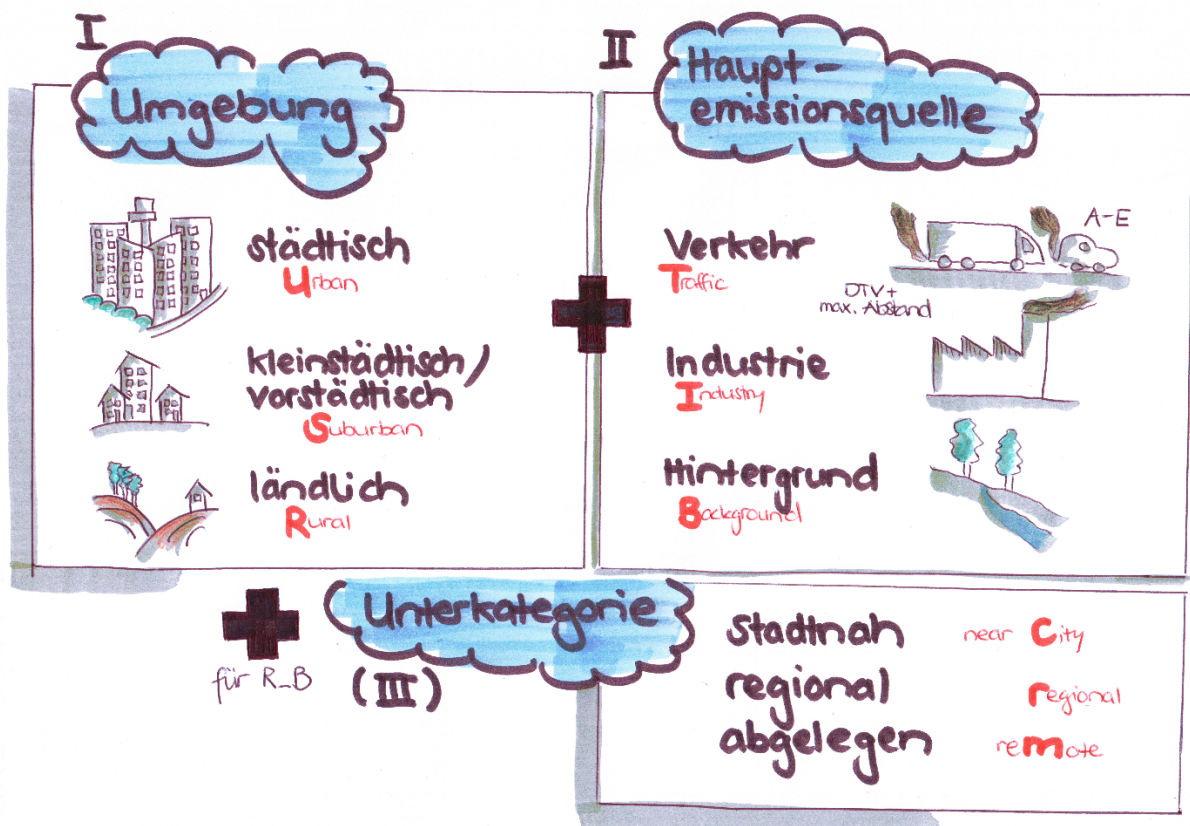 I
Umgebung
städtisch
Urban
kleinstädtisch/
vorstädtisch
Suburban
ländlich
Rural
II
Haupt-
emissionsquelle
Verkehr
Traffic
A-E
DTV +
max. Abstand
Industrie
Industry
Hintergrund
Background
für R_B
Unterkategorie
(III)
stadtnah near City
regional regional
abgelegen remote